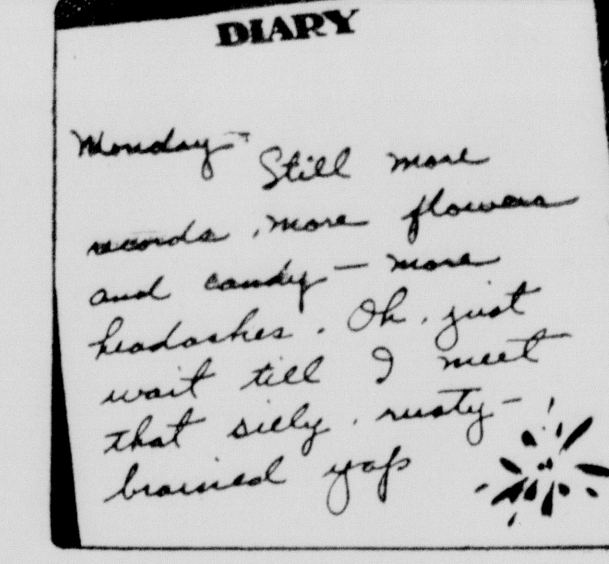 DIARY
Monday -
Still more
records, more flowers
and candy - more
headaches. Oh, just
wait till I meet
that silly, rusty-
brained yap